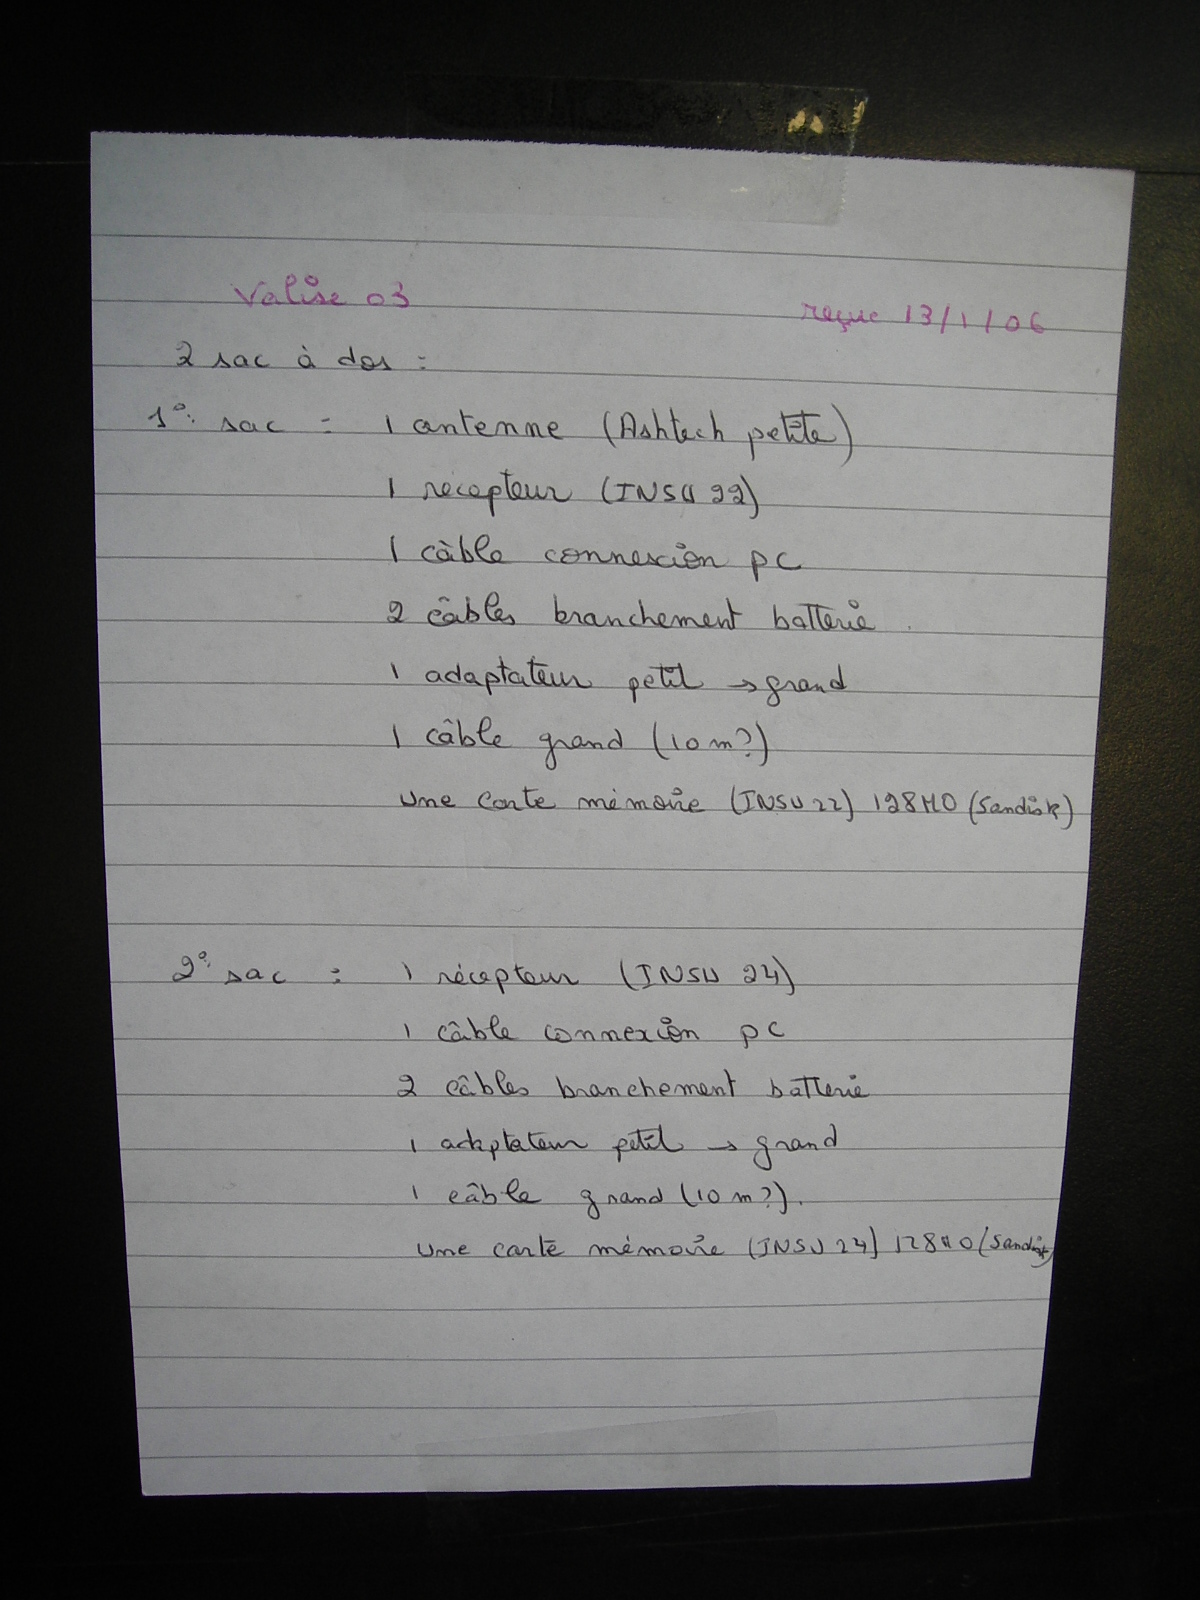 Valise 03
reçue 13/1/06
2 sac à dos :
1°: sac : 1 antenne (Ashtech petite)
1 récepteur (INSU 22)
1 câble connexion pc
2 câbles branchement batterie.
1 adaptateur petit → grand
1 câble grand (10 m?)
Une carte mémoire (INSU 22) 128 MO (Sandisk)
2°: sac : 1 récepteur (INSU 24)
1 câble connexion pc
2 câbles branchement batterie
1 adaptateur petit → grand
1 câble grand (10 m?).
Une carte mémoire (INSU 24) 128 MO (Sandisk)